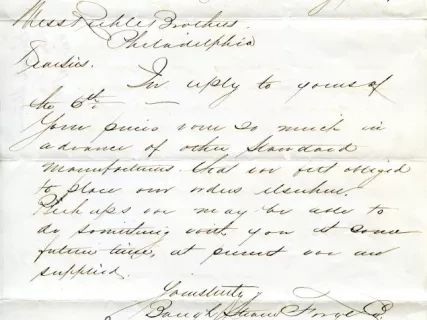 Mess Riehle Brothers.
Philadelphia
In reply to yours of
the 6th —
Your prices were so much in
advance of other standard
manufacturers that we felt obliged
to place our orders elsewhere.
Perhaps we may be able to
do something with you at some
future time, at present we are
supplied.
Yours truly,
Baugh Steam Forge Co